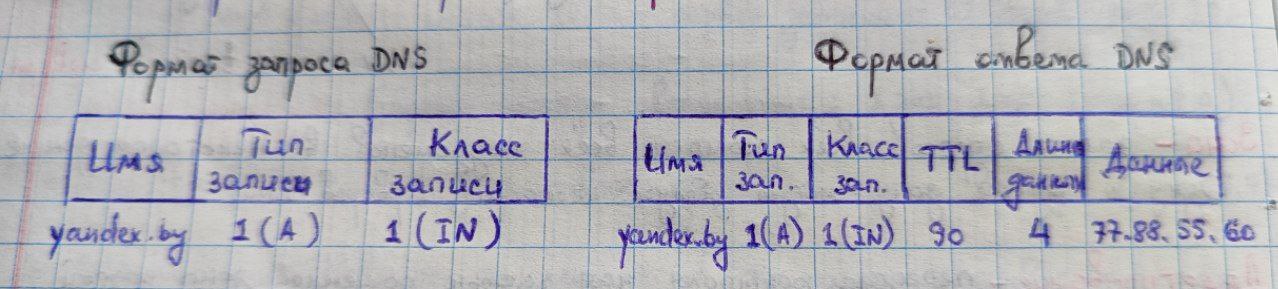 Формат запроса DNS
Имя Тип записи Класс записи
yandex.by 1(A) 1(IN)
Формат ответа DNS
Имя Тип зап. Класс зап. TTL Длина данных Данные
yandex.by 1(A) 1(IN) 90 4 77.88.55.60